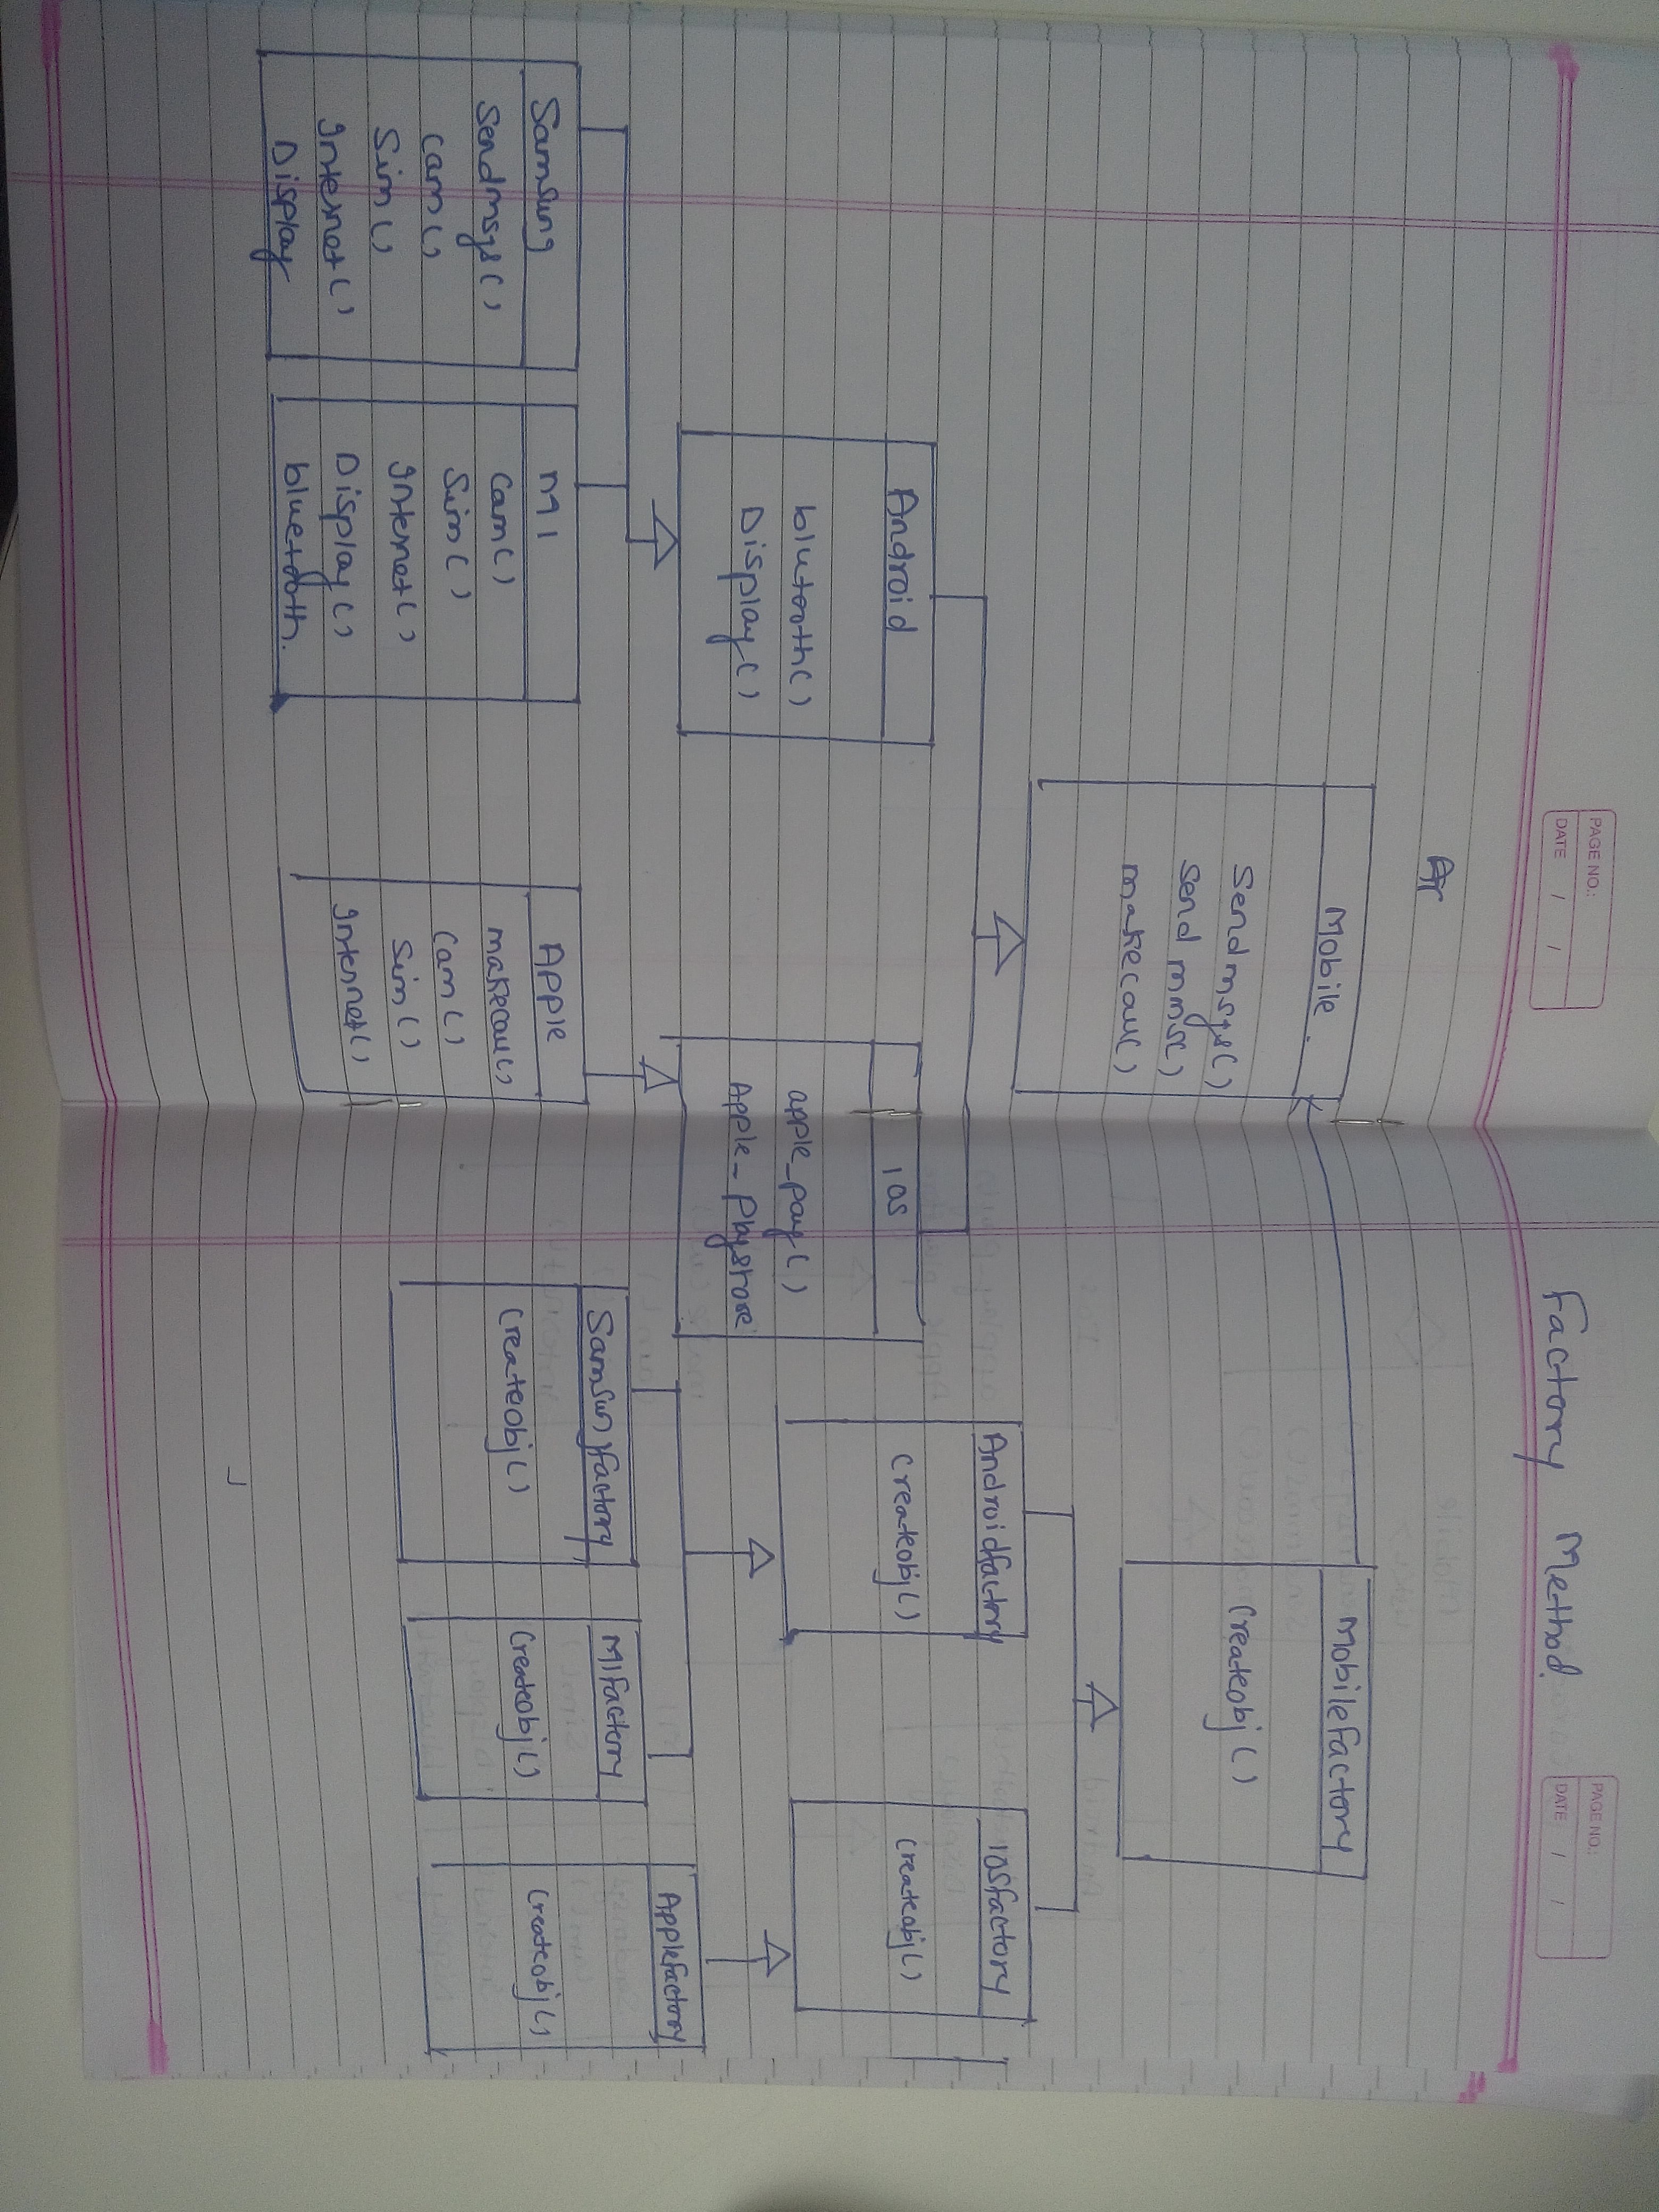 PAGE NO.:
DATE / /
Mobile
Sendmsgs()
Send mms()
makecall()
Android
blutooth()
Display()
IOS
apple_pay()
Apple_Playstore
Samsung
Sendmsgs()
Cam()
Sim()
Internet()
Display
MI
Cam()
Sim()
Internet()
Display()
bluetooth.
Apple
makecall()
Cam()
Sim()
Internet()
PAGE NO.:
DATE / /
Factory Method
MobileFactory
Createobj()
Androidfactry
Createobj()
IOSfactory
Createobj()
Samsungfactory
Createobj()
MIfactory
Createobj()
Applefactory
Createobj()